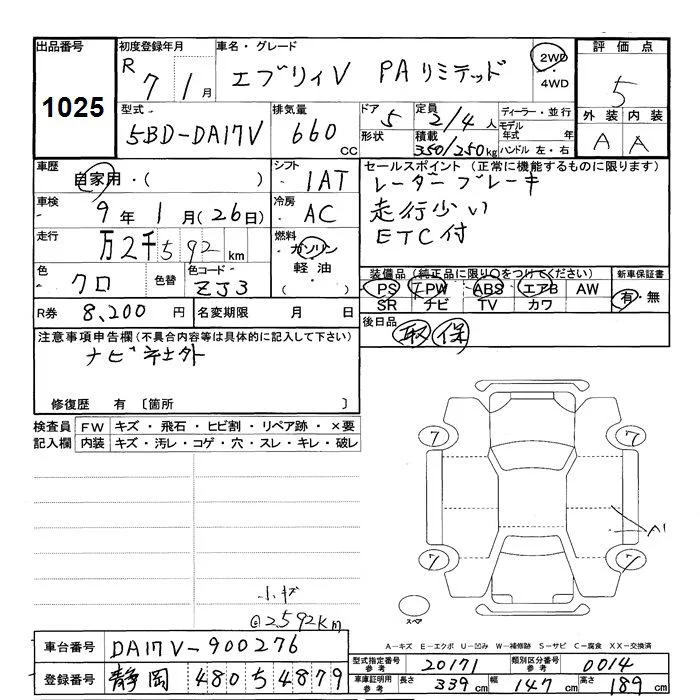 出品番号
1025
初度登録年月
R 7年 1月
車名・グレード
エブリィV PAリミテッド
2WD
・
4WD
評価点
5
外装 内装
A A
型式
5BD-DA17V
排気量
660 CC
ドア 5
形状
定員 2/4人
積載 350/250kg
ディーラー・並行
モデル年式 年
ハンドル 左・右
車歴
自家用・( )
シフト
1AT
車検
9年 1月(26日)
冷房
AC
走行
万2千592km
燃料
ガソリン
軽油・
( )
色
クロ
色替
色コード
ZJ3
R券 8,200円
名変期限 月 日
セールスポイント(正常に機能するものに限ります)
レーダーブレーキ
走行少い
ETC付
装備品(純正品に限り○をつけてください)
PS PW ABS エアB AW
SR ナビ TV カワ
新車保証書
有・無
後日品
取 保
注意事項申告欄(不具合内容等は具体的に記入して下さい)
ナビ社外
修復歴 有〔箇所 〕
検査員記入欄
FW キズ・飛石・ヒビ割・リペア跡・×要
内装 キズ・汚レ・コゲ・穴・スレ・キレ・破レ
小キズ
@2,592km
7 7
A1
7 7
スペア
A−キズ E−エクボ U−凹み W−補修跡 S−サビ C−腐食 XX−交換済
車台番号 DA17V-900276
登録番号 静岡 480 5 4879
型式指定番号参考 20171
類別区分番号参考 0014
車庫証明用参考 長さ 339cm 幅 147cm 高さ 189cm